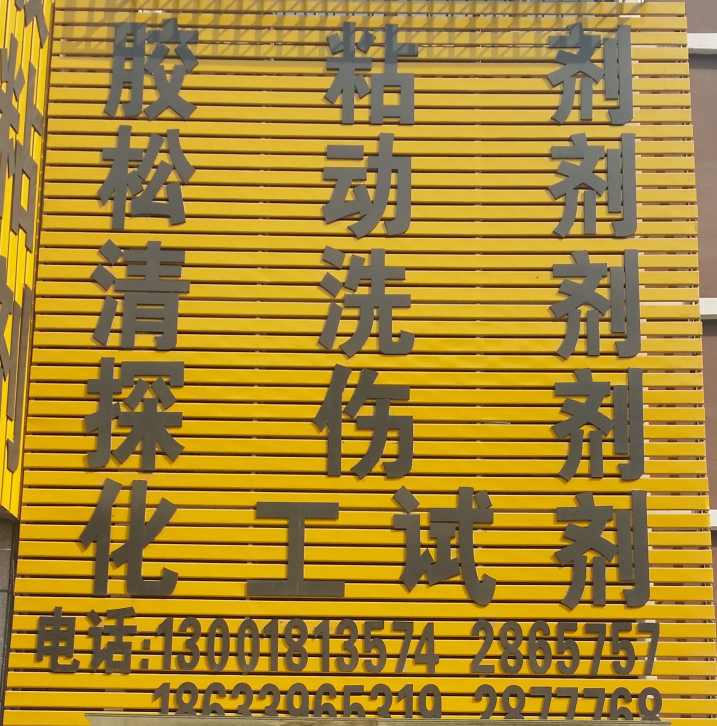 胶粘剂
松动剂
清洗剂
探伤剂
化工试剂
电话:13001813574 2865757
18633965319 2877768